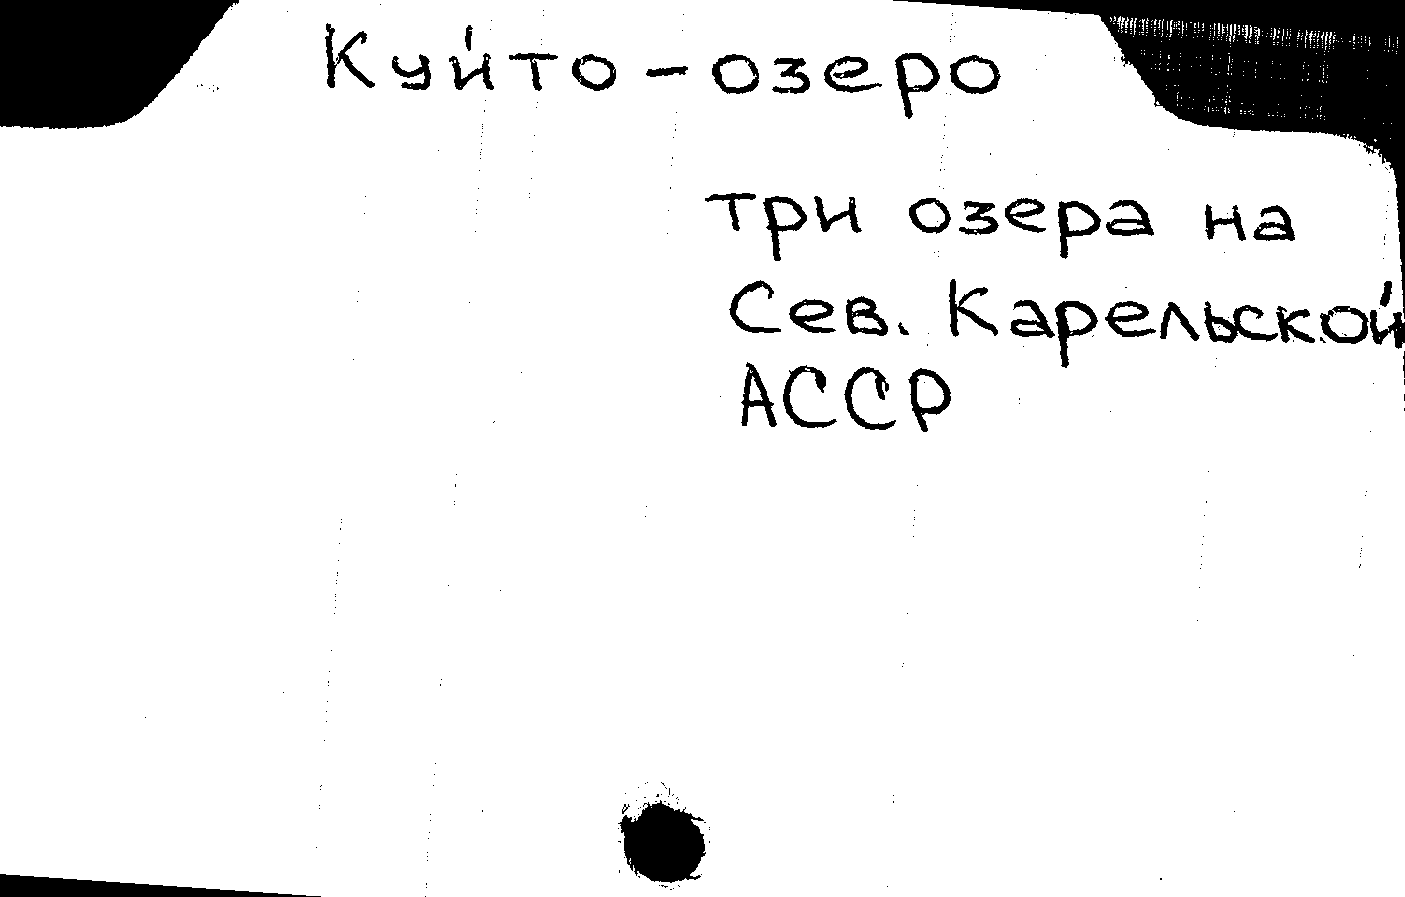 Куйто-озеро
три озера на
Сев. Карельской
АССР